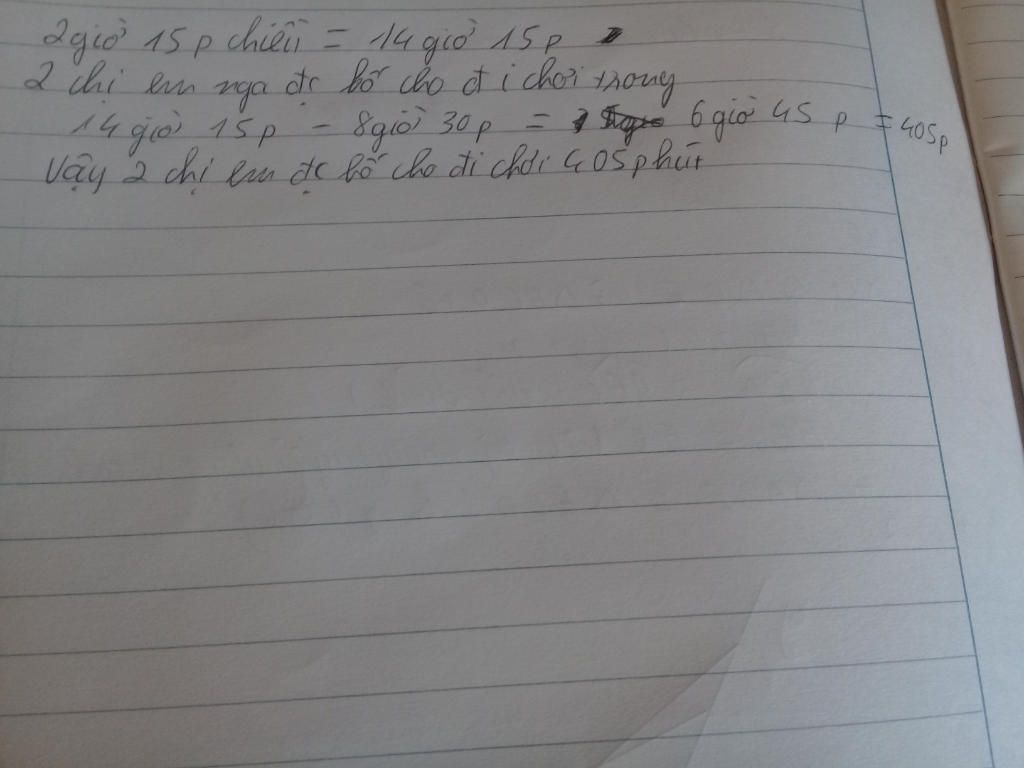 2giờ 15p chiều = 14giờ 15p
2 chị em nga đc bố cho đi chơi trong
14giờ 15p - 8giờ 30p = 6giờ 45 p = 405p
Vậy 2 chị em đc bố cho đi chơi 405phút